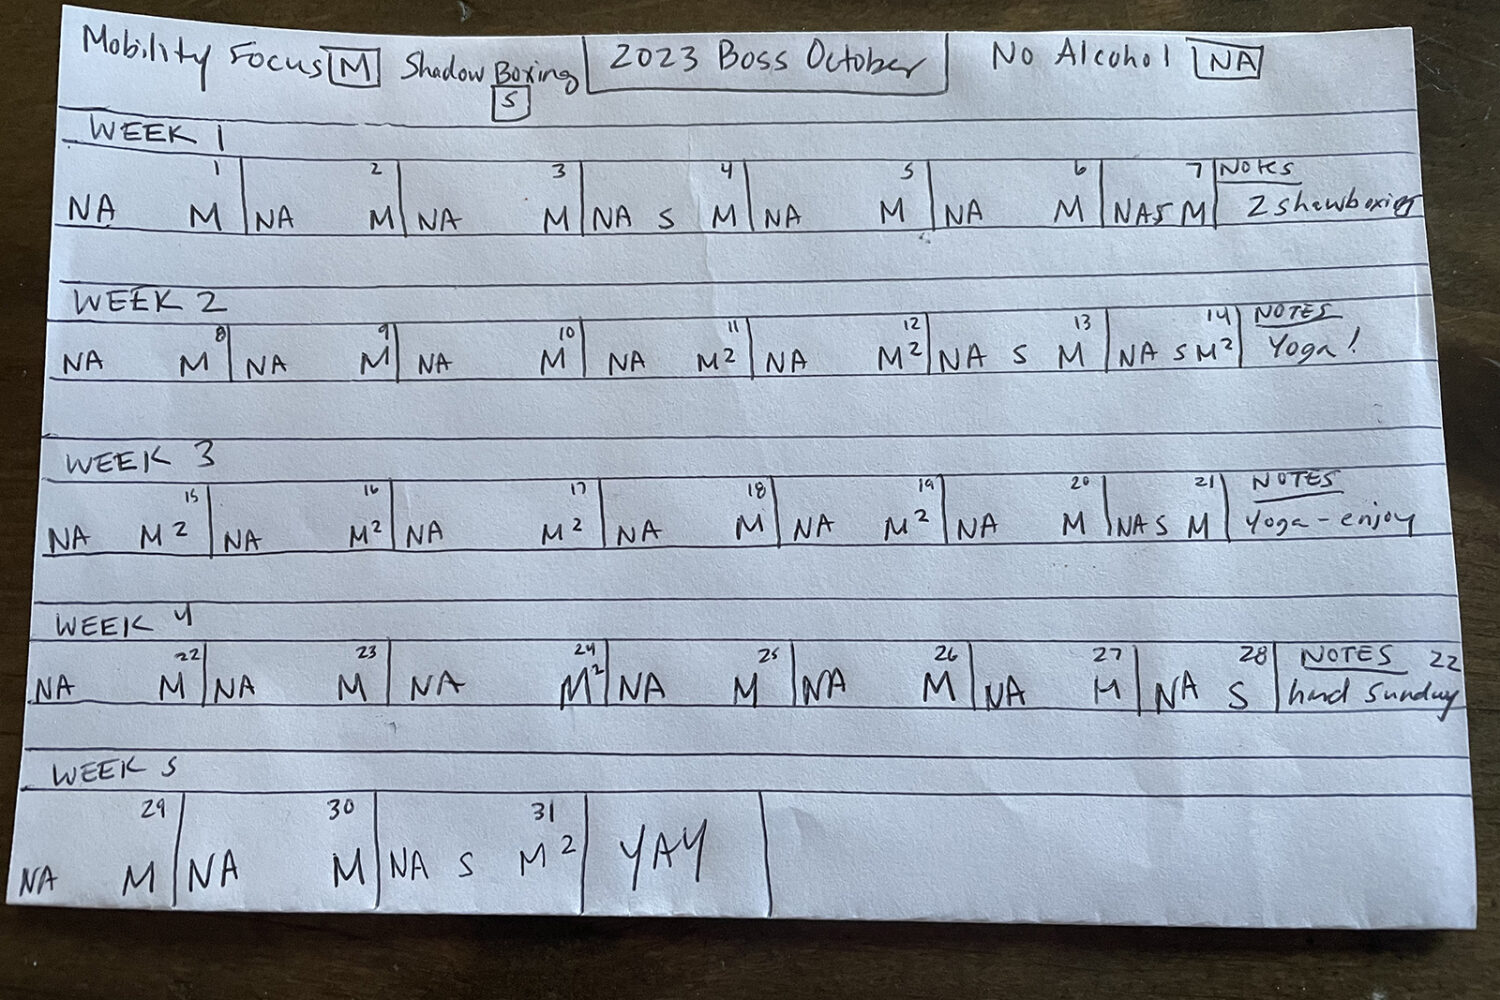 Mobility Focus M Shadow Boxing S 2023 Boss October No Alcohol NA
WEEK 1
1 2 3 4 5 6 7 NOTES
NA M NA M NA M NA S M NA M NA M NA S M 2 showboxing
WEEK 2
8 9 10 11 12 13 14 NOTES
NA M NA M NA M NA M2 NA M2 NA S M NA S M2 Yoga!
WEEK 3
15 16 17 18 19 20 21 NOTES
NA M2 NA M2 NA M2 NA M NA M2 NA M NA S M Yoga - enjoy
WEEK 4
22 23 24 25 26 27 28 NOTES 22
NA M NA M NA M2 NA M NA M NA M NA S hard Sunday
WEEK 5
29 30 31
NA M NA M NA S M2 YAY